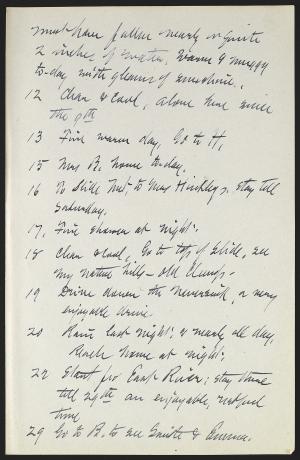 must have fallen nearly or quite
2 inches of water. Warm & muggy
to-day with gleams of sunshine.
12 Clear & cool, alone here since
the 9th
13 Fine warm day, Go to H.
15 Mrs B. home to-day.
16 To Slide Mt to Mrs Hinkley's. stay till
Saturday.
17, Fine shower at night.
18 Clear & cool, Go to top of Slide, see
my nature - old
19 Drive down the Neversink, a very
enjoyable drive.
20 Rain last night, & nearly all day,
Reach home at night.
22 Start for East River; stay there
till 29th an enjoyable, restful
time
29 Go to B. to see Smith & Emma.